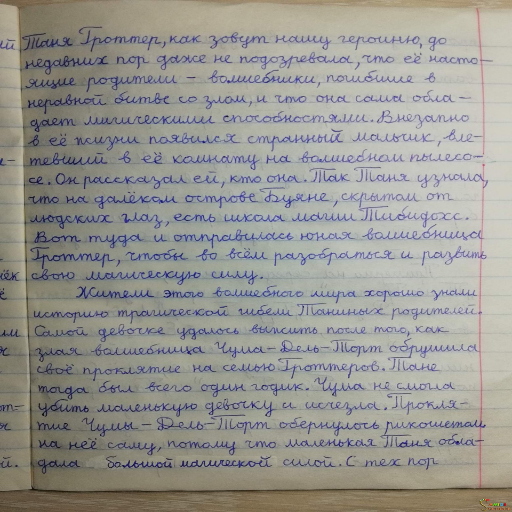 Таня Гроттер, как зовут нашу героиню, до
недавних пор даже не подозревала, что её насто-
ящие родители - волшебники, погибшие в
неравной битве со злом, и что она сама обла-
дает магическими способностями. Внезапно
в её жизни появился странный мальчик, вле-
тевший в её комнату на волшебном пылесо-
се. Он рассказал ей, кто она. Так Таня узнала,
что на далёком острове Буяне, скрытом от
людских глаз, есть школа магии Тибидохс.
Вот туда и отправилась юная волшебница
Гроттер, чтобы во всём разобраться и развить
свою магическую силу.
Жители этого волшебного мира хорошо знали
историю трагической гибели Таниных родителей.
Самой девочке удалось выжить после того, как
злая волшебница Чума-Дель-Торт обрушила
своё проклятие на семью Гроттеров. Тане
тогда был всего один годик. Чума не смогла
убить маленькую девочку и исчезла. Прокля-
тие Чумы-Дель-Торт обернулось рикошетом
на неё саму, потому что маленькая Таня обла-
дала большой магической силой. С тех пор